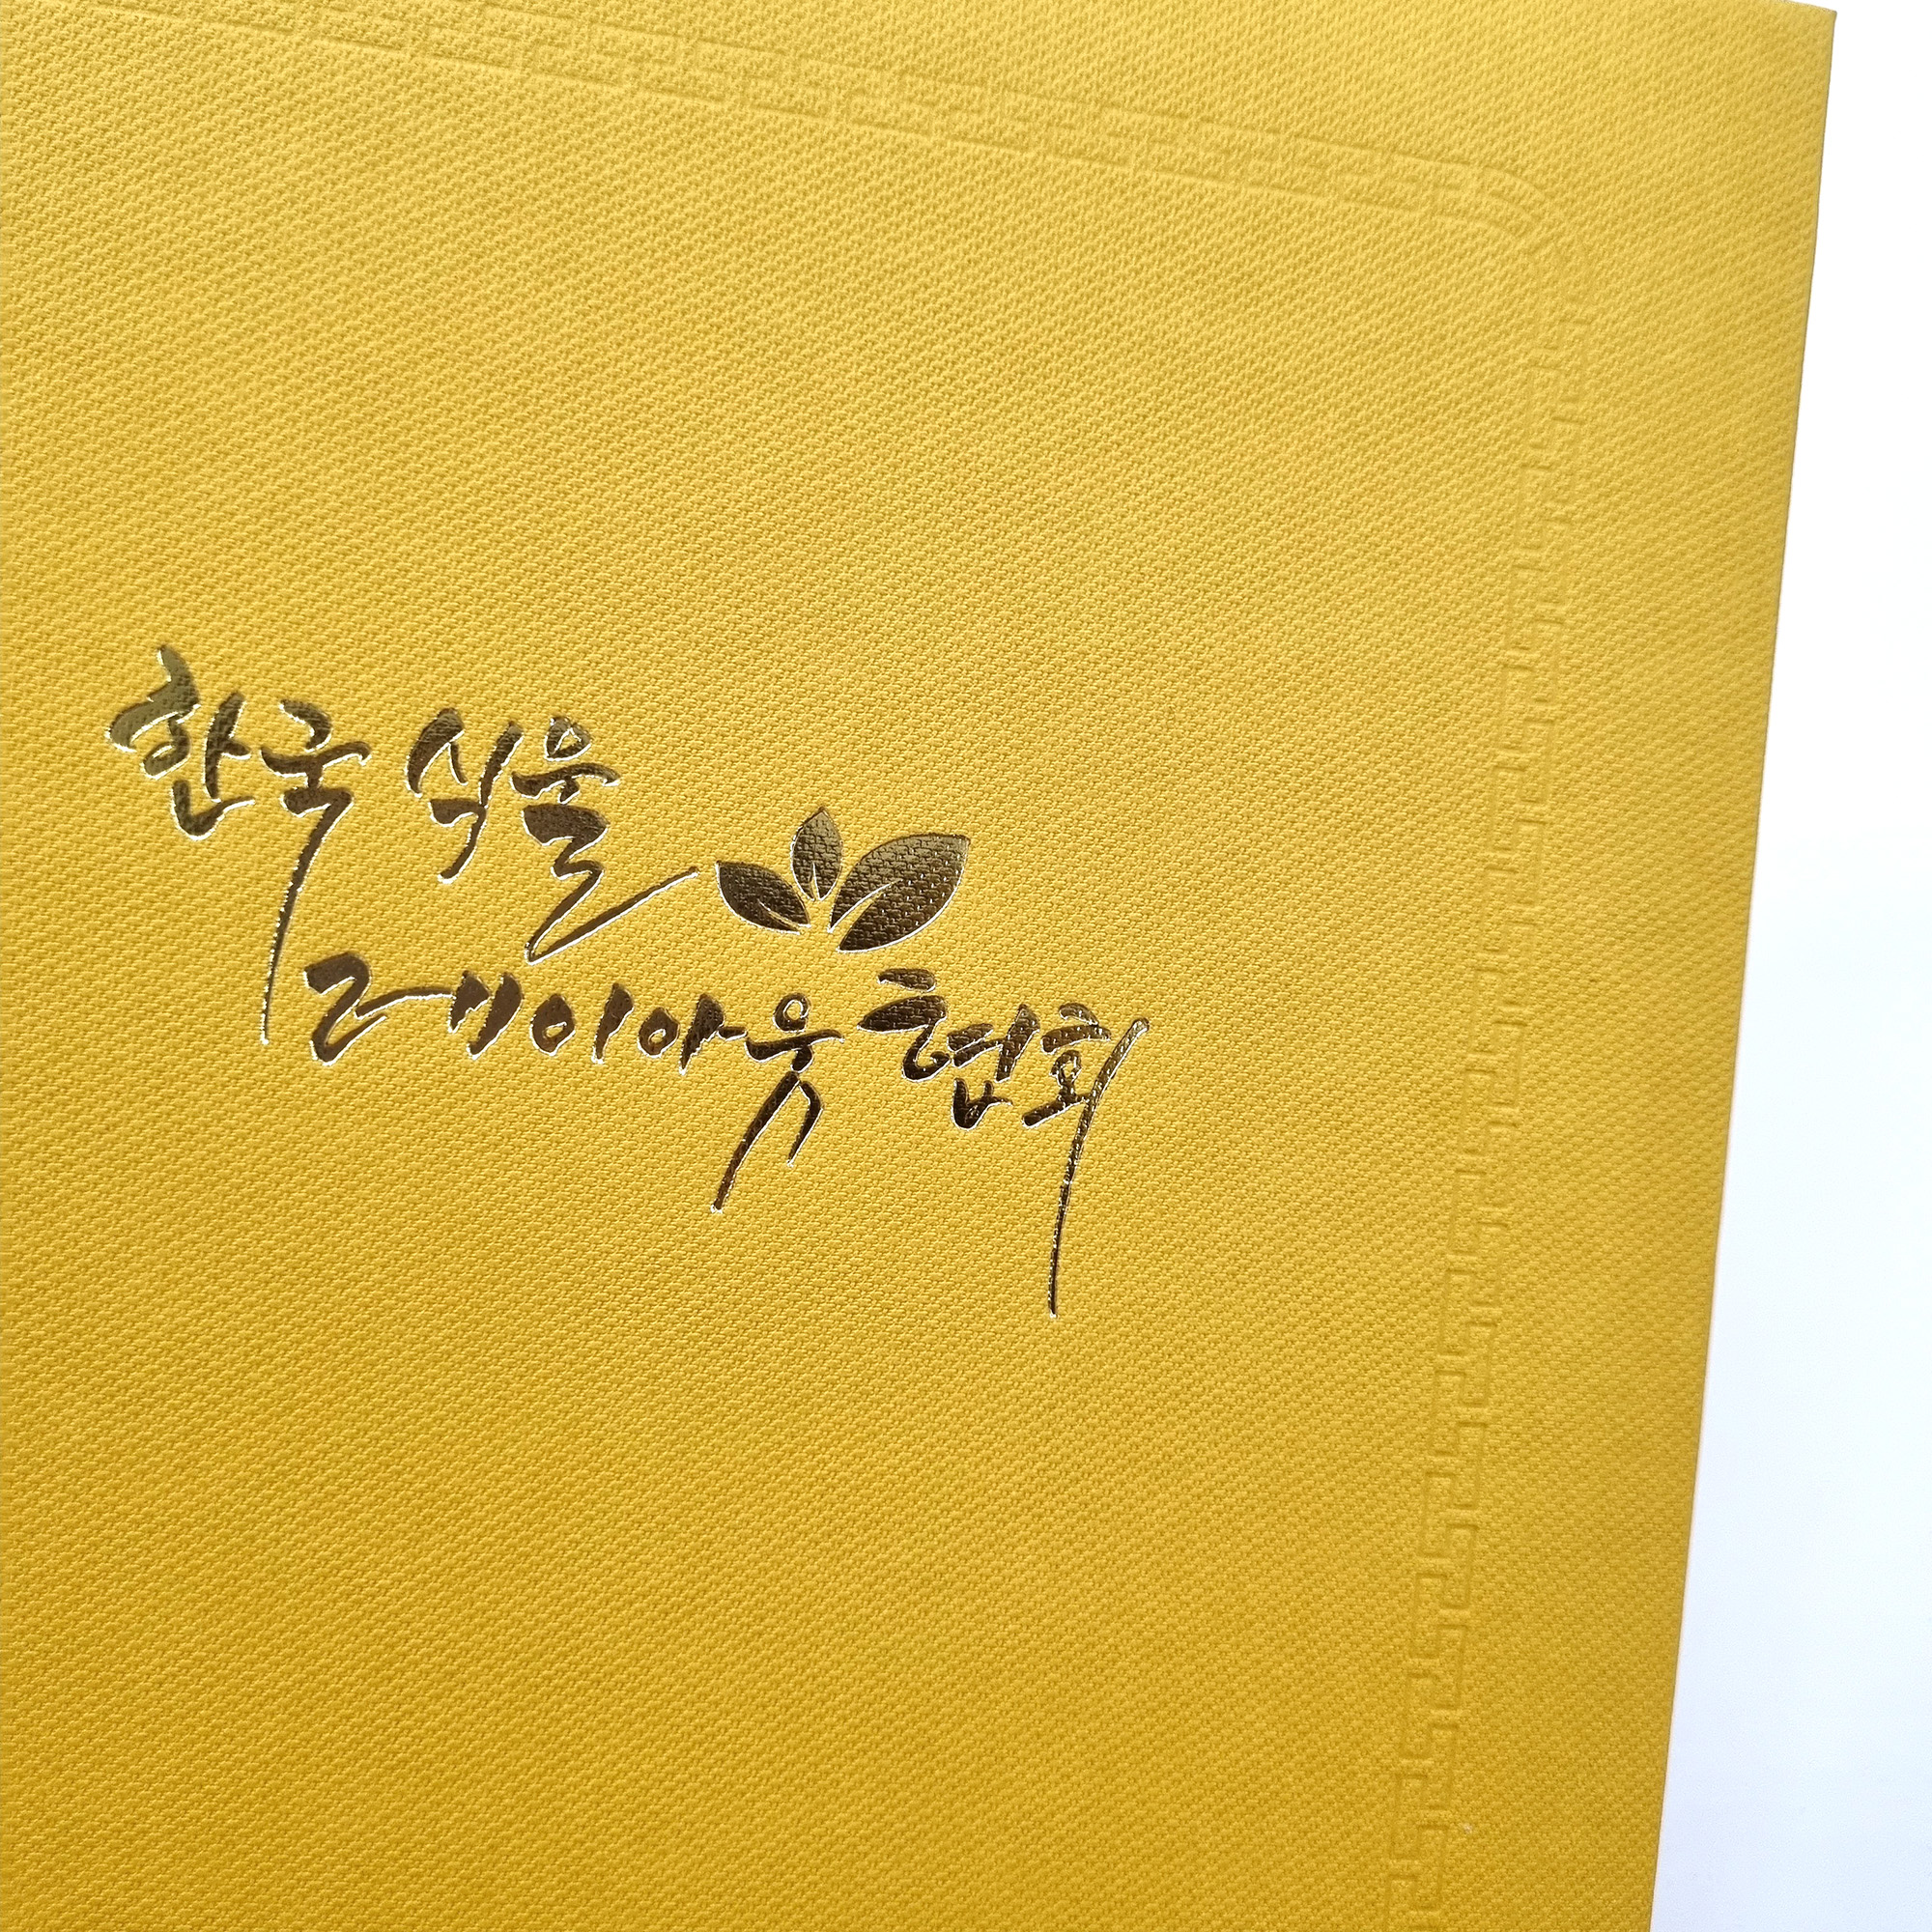 한국 식물
레이아웃 협회